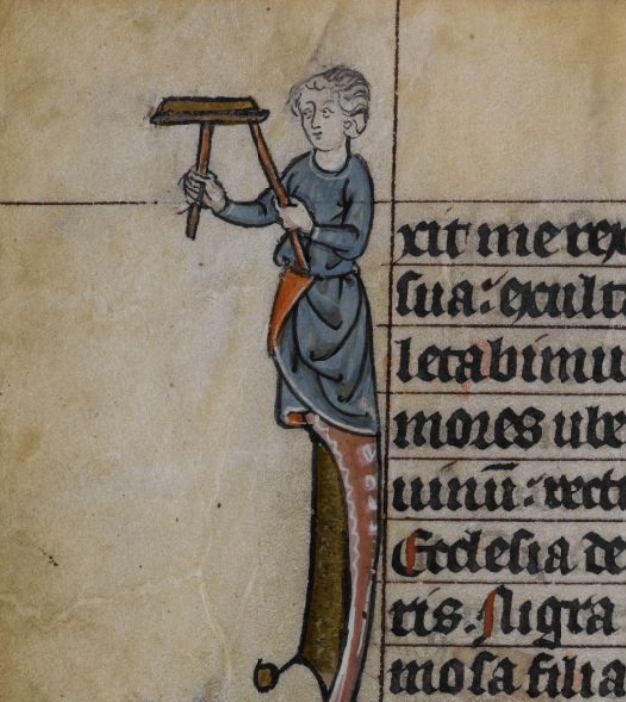 xit me rex
sua: exulta
letabimu
mores ube
uinū: recti
Ecclesia de
ris. Nigra
mosa filia